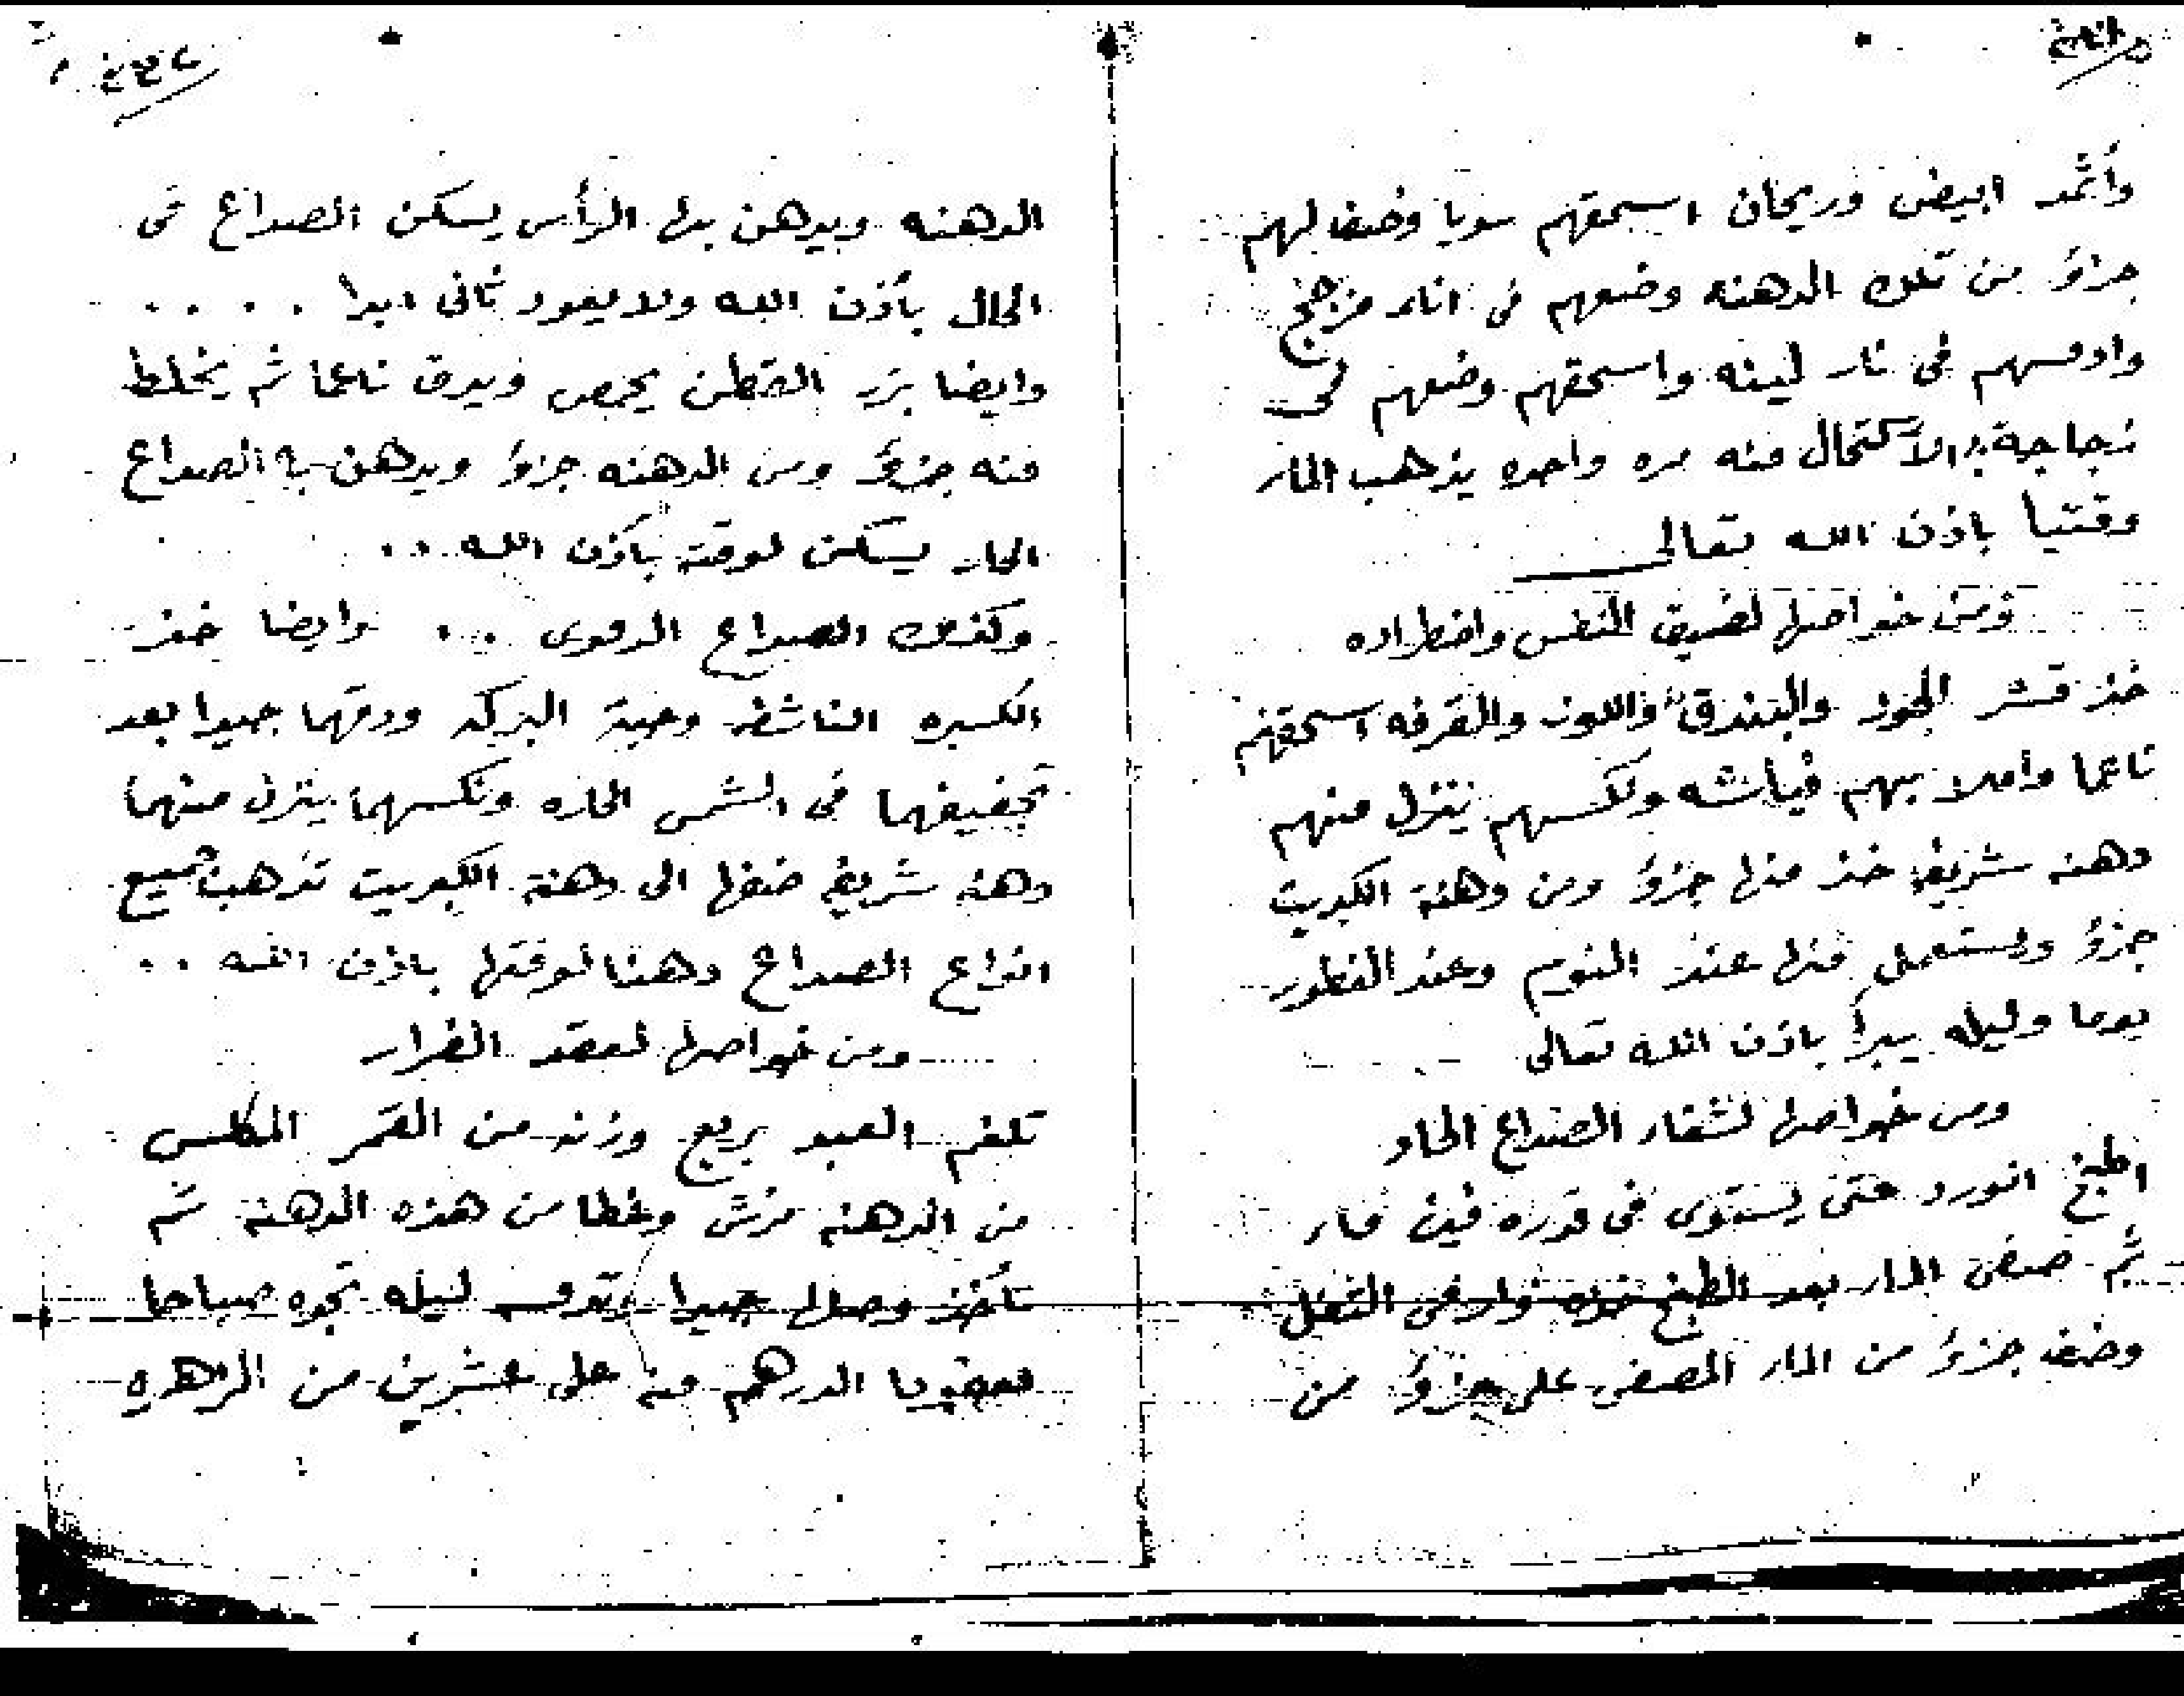 وأثمد ابيض وريحان اسحقهم سويا وضف لهم
جزاؤ من تلك الدهنه وضعهم فى اناء مزجج
وادمسهم فى نار لينه واسحقهم وضعهم فى
زجاجة الأكتحال منه مره واحده يذهب الماء
وقتيا باذن الله تعالى
ومن خواصها لضيق النفس واضطراده
خذ قشر الجوز والبندق واللوز والقرفه اسحقهم
ناعما واملا بهم فياشه ونكسهم ينزل منهم
دهنه شريفه خذ منها جزؤ ومن دهنة الكبريت
جزؤ ويستعمل منها عند النوم وعند الفطور
يوما وليله يبرأ باذن الله تعالى
ومن خواصها لشفاء الصداع الحار
اطبخ الورد حتى يستوى فى قدره فيه ماء
ثم صفى الماء بعد الطبخ وارمى الثفل
وضف جزؤ من الماء المصفى على جزؤ من
الدهنه ويدهن بها الرأس يسكن الصداع فى
الحال بأذن الله ولا يعود ثانى ابدا . . . .
وايضا بزر القطن يحمص ويدق ناعما ثم يخلط
منه جزؤ ومن الدهنه جزؤ ويدهن به الصداع
الحار يسكن لوقته بأذن الله ..
وكذلك الصداع الدموى .. وايضا خذ
الكسبره الناشفه وحبة البركه ودقهما جيدا بعد
تجفيفهما فى الشمس الحاره ونكسهما ينزل منهما
دهنه شريفه ضفها الى دهنة الكبريت تذهب جميع
انواع الصداع دهنا لوقتها باذن الله ..
ومن خواصها لعقد الفرار
تلغم العبد بربع وزنه من القمر المكلس
من الدهنه فرش وغطا من هذه الدهنه ثم
تأخذ وصلها جيدا وتدمسه ليله تجده صباحا
معقودا الدرهم منه على عشرين من الزهره